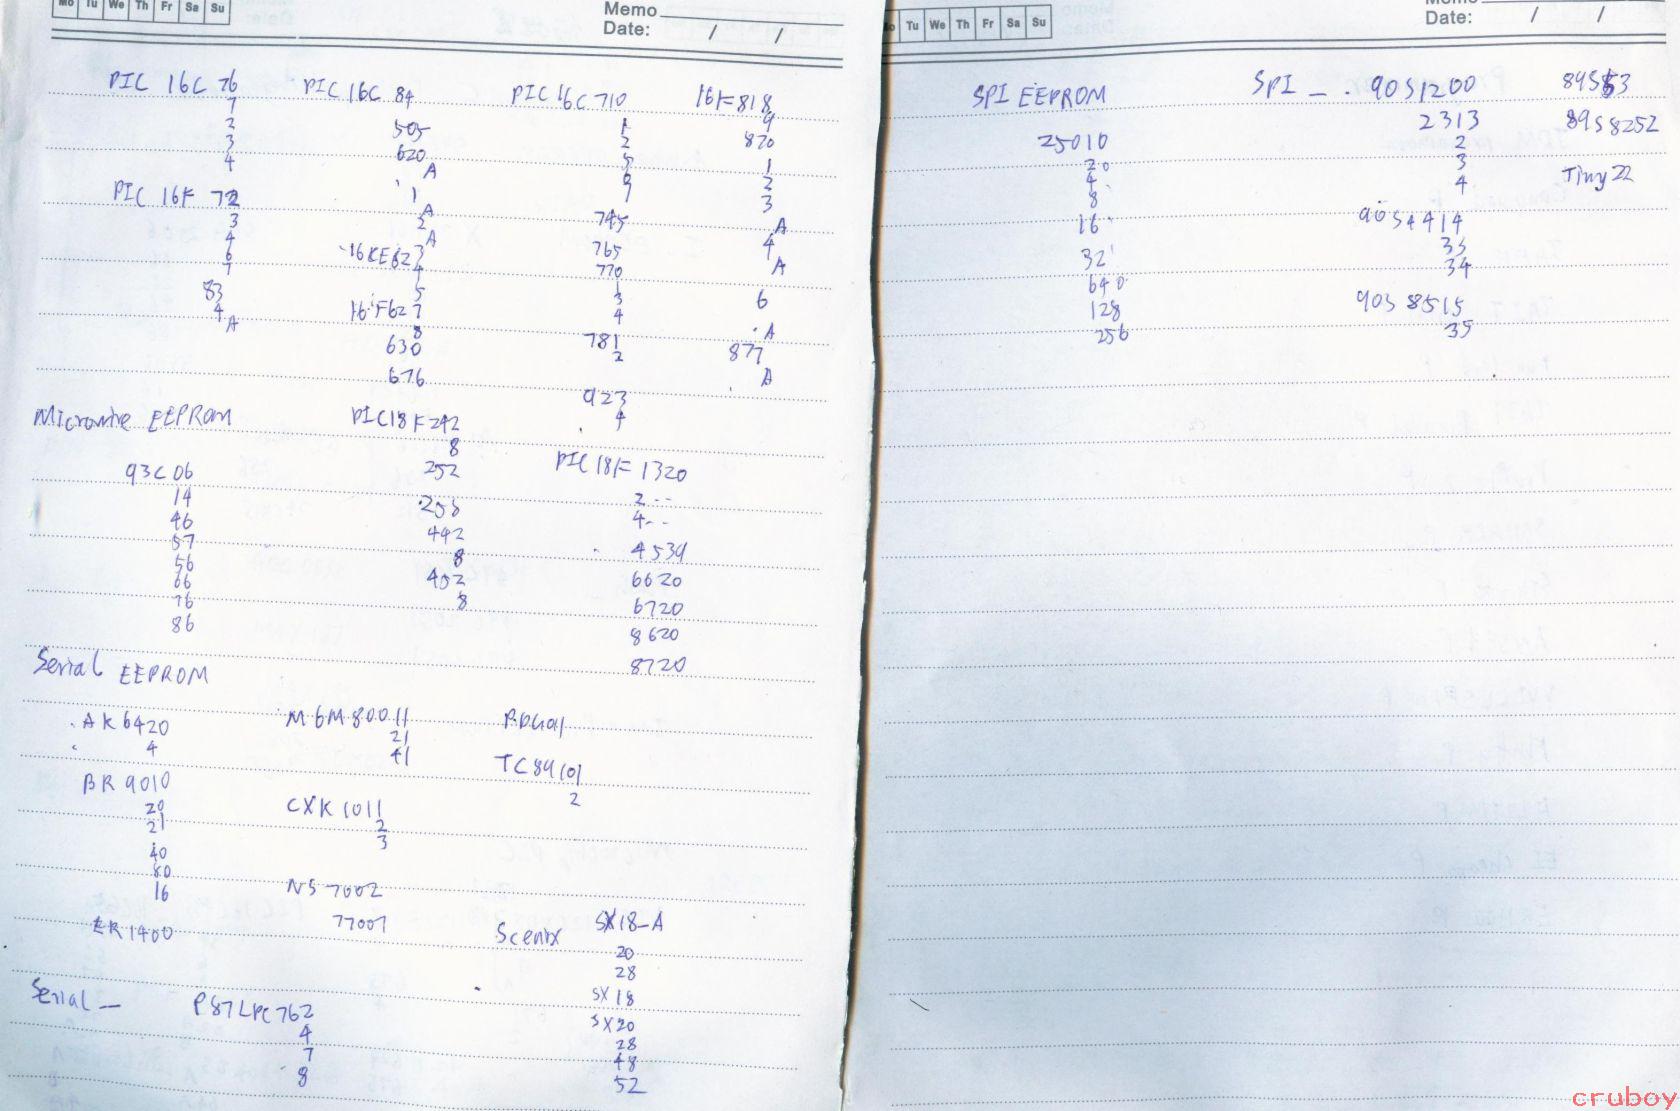 Mo Tu We Th Fr Sa Su
Memo
Date: / /
PIC 16C 76
7
2
3
4
PIC 16F 72
3
4
6
7
83
4
A
PIC 16C 84
505
620
A
1
A
2
A
16CE623
4
5
16F627
8
630
676
PIC 16C 710
1
2
5
745
765
770
1
3
4
781
2
923
4
16F818
9
870
1
2
3
A
4
A
6
A
877
A
Microwire EEPROM
93C06
14
46
57
56
66
76
86
PIC18F242
8
252
258
442
8
452
8
PIC18F 1320
2--
4--
4539
6620
6720
8620
8720
Serial EEPROM
AK6420
4
BR9010
20
21
40
80
16
ER1400
M6M80011
21
41
CXK1011
2
3
NS7002
77007
TC89101
2
Scenix SX18-A
20
28
SX18
SX20
28
48
52
Serial — P87LPC762
4
7
8
Tu We Th Fr Sa Su
Memo
Date: / /
SPI EEPROM
25010
20
4
8
16
32
640
128
256
SPI — . 90S1200
2313
2
3
4
90S4414
33
34
90S8515
35
89S53
89S8252
Tiny22
cruboy